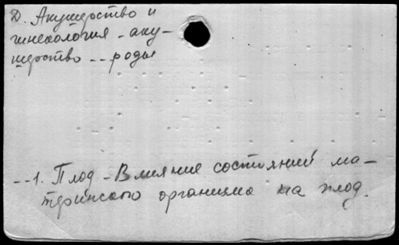 Д. Акушерство и
гинекология - аку-
шерство -- роды
--1. Плод - Влияние состояний ма-
теринского организма на плод.